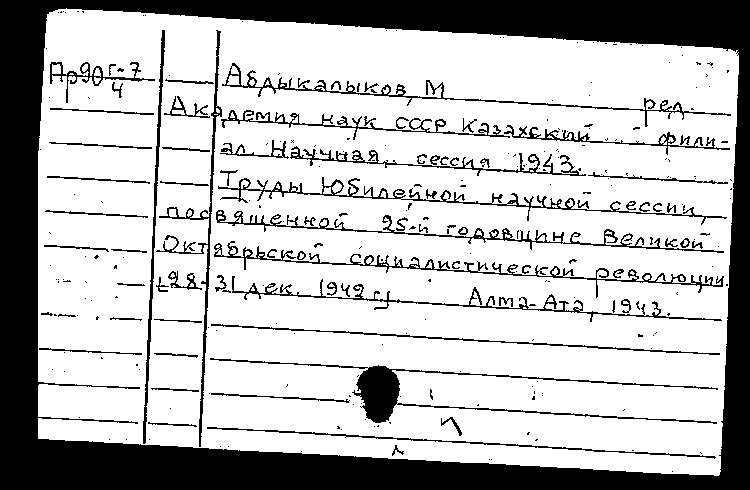 Пр90 г-7/4
Абдыкалыков, М
ред.
Академия наук СССР Казахский фили-
ал Научная сессия 1943.
Труды Юбилейной научной сессии,
посвященной 25-й годовщине Великой
Октябрьской социалистической революции.
[28-31 дек. 1942 г.] Алма-Ата, 1943.